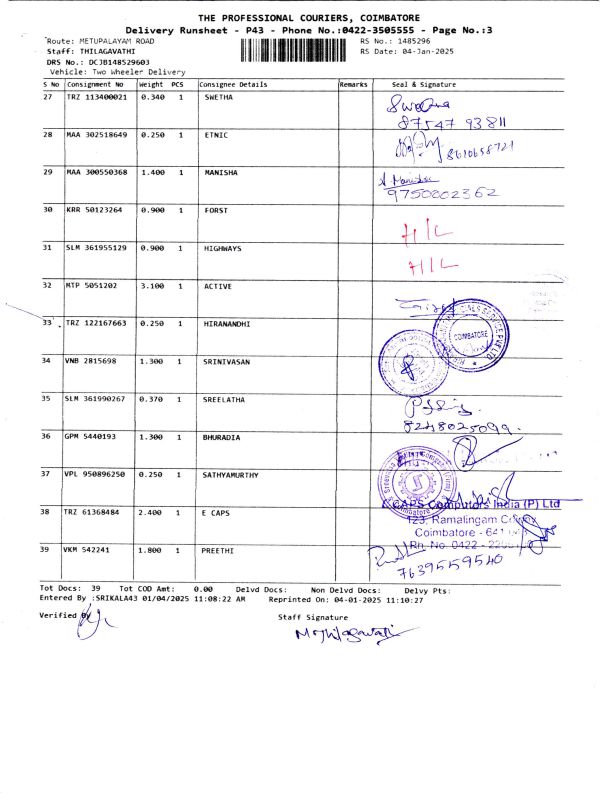 THE PROFESSIONAL COURIERS, COIMBATORE
Delivery Runsheet - P43 - Phone No.:0422-3505555 - Page No.:3
Route: METUPALAYAM ROAD RS No.: 1485296
Staff: THILAGAVATHI RS Date: 04-Jan-2025
DRS No.: DCJB148529603
Vehicle: Two Wheeler Delivery
S No Consignment No Weight PCS Consignee Details Remarks Seal & Signature
27 TRZ 113400021 0.340 1 SWETHA Swetha
87547 93811
28 MAA 302518649 0.250 1 ETNIC 8610658721
29 MAA 300550368 1.400 1 MANISHA
9750002362
30 KRR 50123264 0.900 1 FORST H/L
31 SLM 361955129 0.900 1 HIGHWAYS H/L
32 MTP 5051202 3.100 1 ACTIVE
33 TRZ 122167663 0.250 1 HIRANANDHI COIMBATORE
34 VNB 2815698 1.300 1 SRINIVASAN
35 SLM 361990267 0.370 1 SREELATHA
8248025099
36 GPM 5440193 1.300 1 BHURADIA
37 VPL 950896250 0.250 1 SATHYAMURTHY
38 TRZ 61368484 2.400 1 E CAPS ECAPS Computers India (P) Ltd
123, Ramalingam
Coimbatore - 641
Ph No 0422 -
39 VKM 542241 1.800 1 PREETHI
7639559540
Tot Docs: 39 Tot COD Amt: 0.00 Delvd Docs: Non Delvd Docs: Delvy Pts:
Entered By :SRIKALA43 01/04/2025 11:08:22 AM Reprinted On: 04-01-2025 11:10:27
Verified By Staff Signature
M Thilagavathi